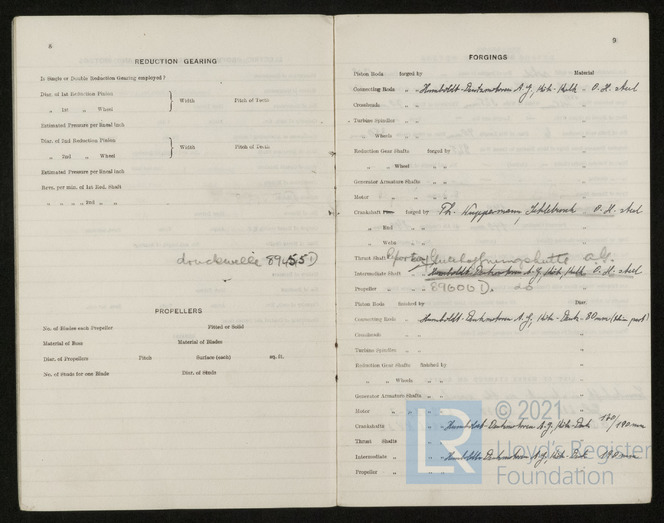 8
REDUCTION GEARING
Is Single or Double Reduction Gearing employed?
Diar. of 1st Reduction Pinion
„ 1st „ Wheel
Width Pitch of Teeth
Estimated Pressure per lineal inch
Diar. of 2nd Reduction Pinion
„ 2nd „ Wheel
Width Pitch of Teeth
Estimated Pressure per lineal inch
Revs. per min. of 1st Red. Shaft
„ „ „ „ 2nd „ „
druckwelle 89455 D
PROPELLERS
No. of Blades each Propeller Fitted or Solid
Material of Boss Material of Blades
Diar. of Propellers Pitch Surface (each) sq. ft.
No. of Studs for one Blade Diar. of Studs
9
FORGINGS
Piston Rods forged by Material
Connecting Rods „ „ Humboldt-Deutzmotoren A.G., O.H. steel
Crossheads „ „ „
Turbine Spindles „ „ „
„ Wheels „ „ „
Reduction Gear Shafts forged by „
„ „ Wheel „ „ „
Generator Armature Shafts „ „ „
Motor „ „ „ „
Crankshaft forged by Th. O.H. steel
„ Rod „ „
„ Webs „ „
Thrust Shaft A.G.
Intermediate Shaft „ Humboldt-Deutzmotoren A.G., O.H. steel
Propeller „ „ 89600 D. 26
Piston Rods finished by Diar.
Connecting Rods „ „ Humboldt-Deutzmotoren A.G., 80 mm
Crossheads „ „ „
Turbine Spindles „ „ „
Reduction Gear Shafts finished by „
„ „ Wheels „ „ „
Generator Armature Shafts „ „ „
Motor „ „ „ „
Crankshafts „ „ Humboldt-Deutzmotoren A.G., 160/180 mm
Thrust Shafts „ „
Intermediate „ „ „ Humboldt-Deutzmotoren A.G., 190 mm
Propeller „ „ „
© 2021
LR
Lloyd's Register
Foundation